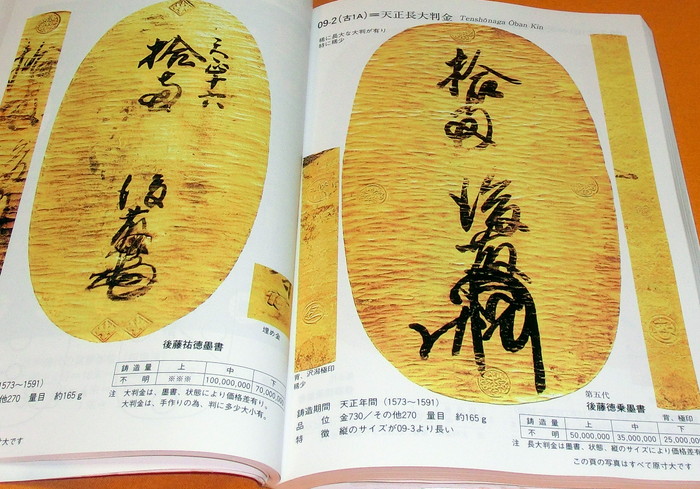 天正十六
拾両
後藤
埋め金
後藤祐徳墨書
鋳造量 上 中 下
不明 ※※※ 100,000,000 70,000,
1573〜1591)
他270 量目 約165g
注 大判金は、墨書、状態により価格差有り。
大判金は、手作りの為、判に多少大小有。
大です
09-2(古1A)=天正長大判金 Tenshōnaga Ōban Kin
極に長大な大判が有り
特に稀少
拾両
後藤
背、沢潟極印
稀少
鋳造期間 天正年間 (1573〜1591)
品位 金730/その他270 量目 約165g
特徴 縦のサイズが09-3より長い
第五代
後藤徳乗墨書
背、極印
鋳造量 上 中 下
不明 50,000,000 35,000,000 25,000,
注 長大判金は墨書、状態、縦のサイズにより価格差有
この頁の写真はすべて原寸大です